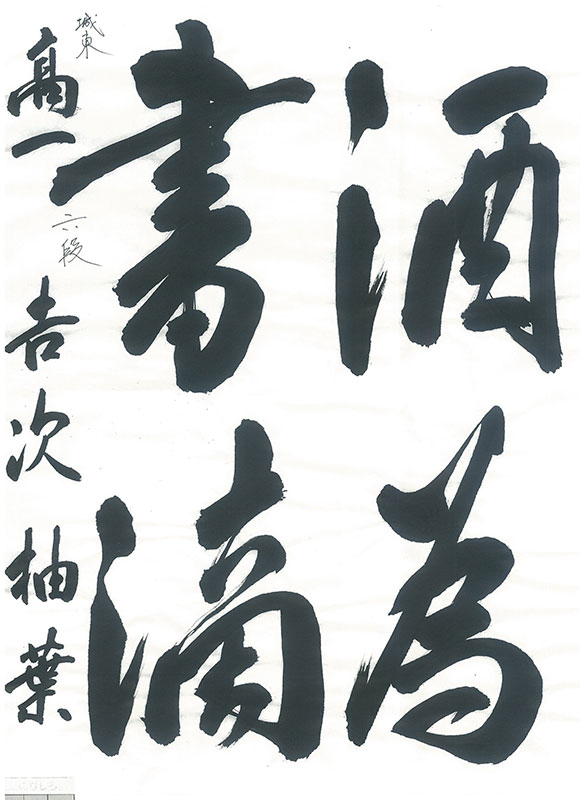 酒為
書滴
城東
高一 六段 吉次柚葉